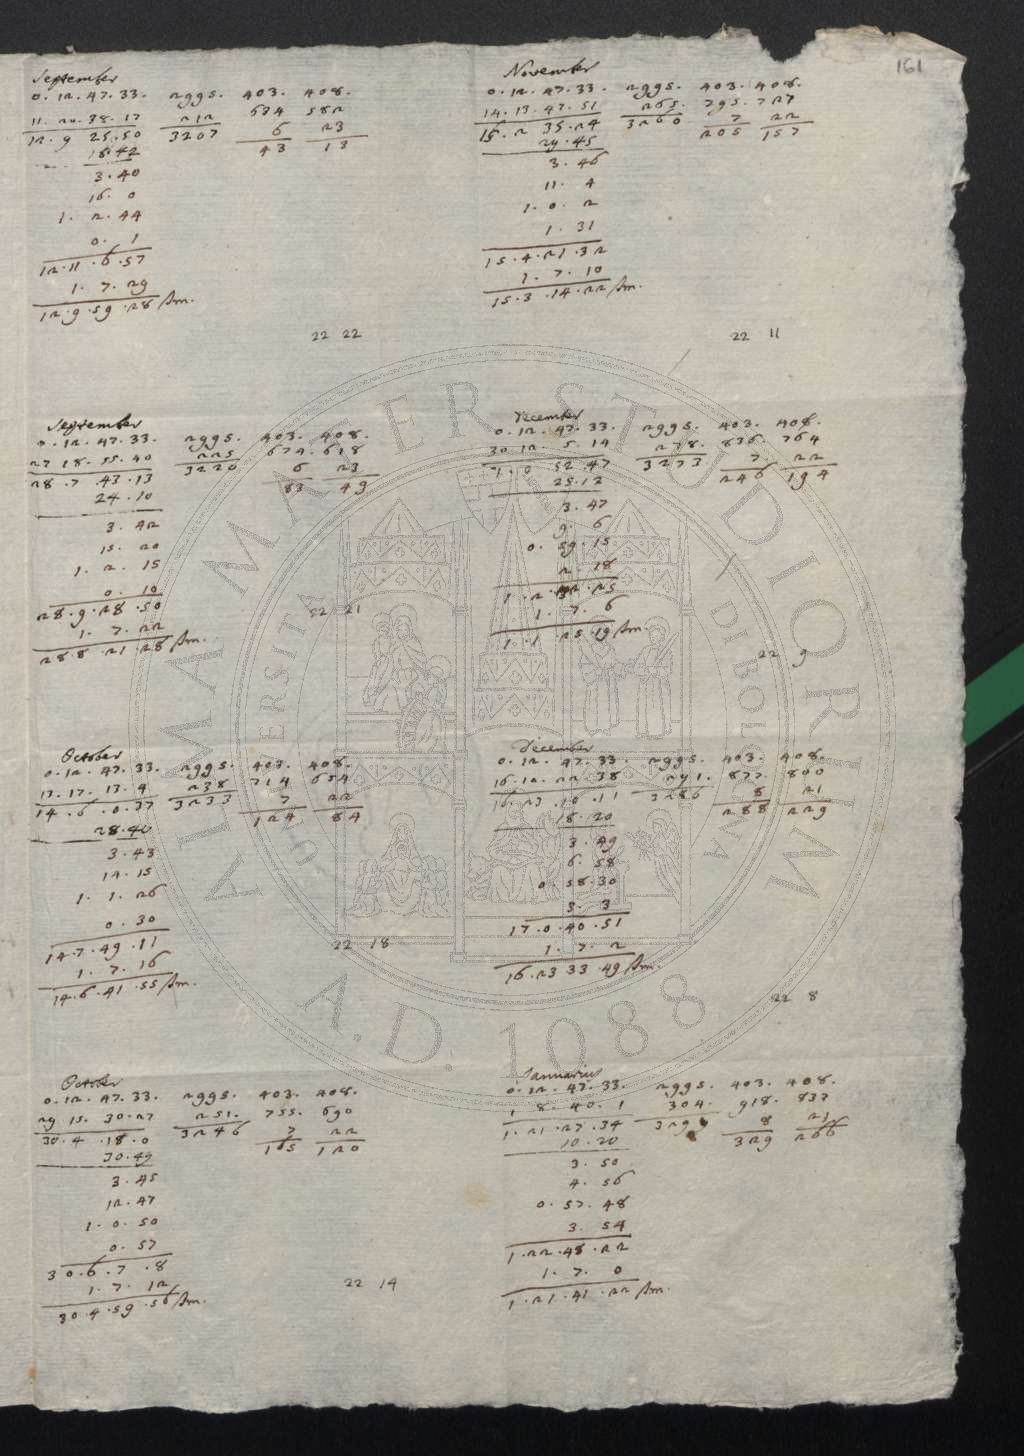 161
September
0. 12. 47. 33. 2995. 403. 408.
11. 20. 38. 17 212 634 582
12. 9 25. 50 3207 6 23
18. 42 43 13
3. 40
16. 0
1. 2. 44
0. 1
12. 11. 6. 57
1. 7. 29
12. 9. 59. 28
22 22
September
0. 12. 47. 33. 2995. 403. 408.
27 18. 55. 40 225 674. 618
28. 7. 43. 13 3220 6 23
24. 10 83 49
3. 42
15. 20
1. 2. 15
0. 10
28. 9. 28. 50
1. 7. 22
28. 8. 21. 28
22 21
October
0. 12. 47. 33. 2995. 403. 408.
13. 17. 13. 4 238 714 654
14. 6. 0. 37 3233 7 22
28. 40 124 84
3. 43
14. 15
1. 1. 26
0. 30
14. 7. 49. 11
1. 7. 16
14. 6. 41. 55
22 18
October
0. 12. 47. 33. 2995. 403. 408.
29 15. 30. 27 251. 755. 690
30. 4. 18. 0 3246 7 22
30. 49 165 120
3. 45
12. 47
1. 0. 50
0. 57
30. 6. 7. 8
1. 7. 12
30. 4. 59. 56
22 14
November
0. 12. 47. 33. 2995. 403. 408.
14. 13. 47. 51 265. 795. 727
15. 2 35. 24 3260 7 22
29. 45 205 157
3. 46
11. 4
1. 0. 2
1. 31
15. 4. 21. 32
1. 7. 10
15. 3. 14. 22
22 11
December
0. 12. 47. 33. 2995. 403. 408.
30. 12. 5. 14 278. 836. 764
1. 0 52. 47 3273 7. 22
25. 12 246 194
3. 47
9. 6
0. 59. 15
2. 18
1. 2. 32. 25
1. 7. 6
1. 1. 25. 19
22 9
December
0. 12. 47. 33. 2995. 403. 408.
16. 10. 22. 38 291. 877. 800
16. 23. 10. 11 3286 8 21
18. 20 288 229
3. 49
6. 58
0. 58. 30
3. 3
17. 0. 40. 51
1. 7. 2
16. 23 33. 49
22 8
Ianuarius
0. 12. 47. 33. 2995. 403. 408.
1 8. 40. 1 304. 918. 837
1. 21. 27. 34 3299 8 21
10. 20 329 266
3. 50
4. 56
0. 57. 48
3. 54
1. 22. 48. 22
1. 7. 0
1. 21. 41. 22
ALMA MATER STUDIORUM
UNIVERSITÀ DI BOLOGNA
A.D. 1088